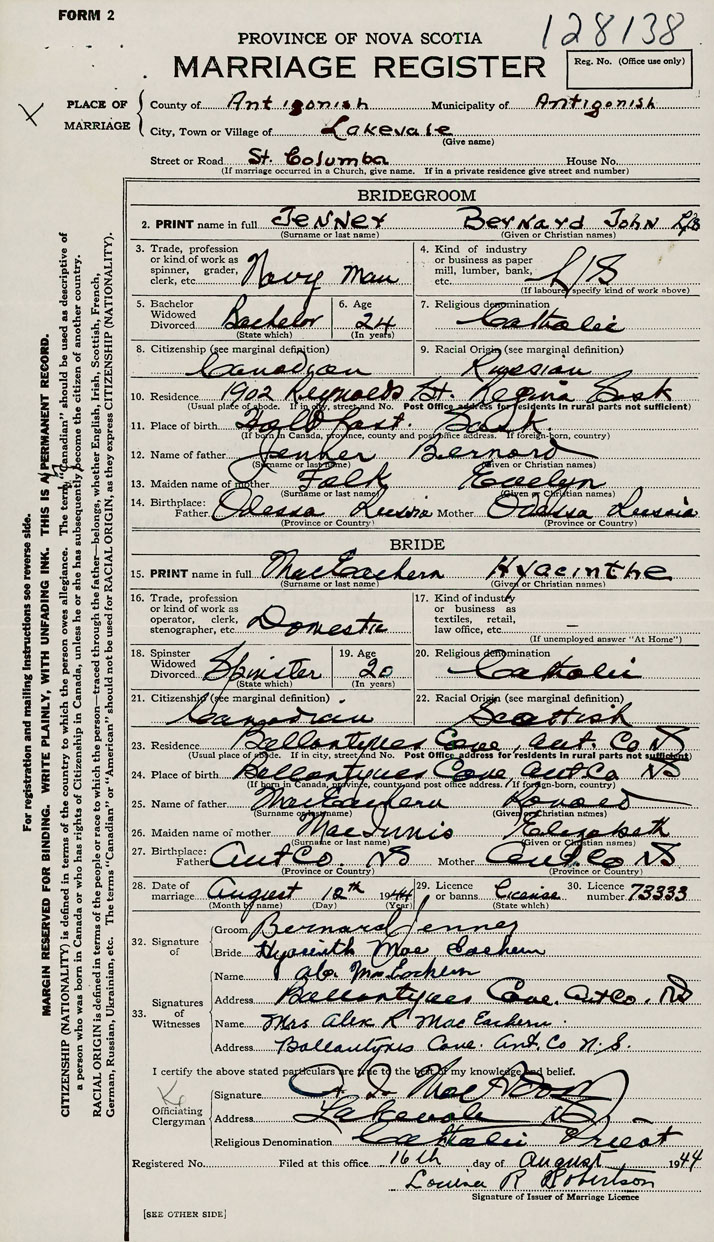 FORM 2
128138
PROVINCE OF NOVA SCOTIA
MARRIAGE REGISTER
Reg. No. (Office use only)
X
PLACE OF MARRIAGE
County of Antigonish Municipality of Antigonish
City, Town or Village of Lakevale
(Give name)
Street or Road St. Columba House No.
(If marriage occurred in a Church, give name. If in a private residence give street and number)
BRIDEGROOM
2. PRINT name in full Jenner Bernard John
(Surname or last name) (Given or Christian names)
3. Trade, profession or kind of work as spinner, grader, clerk, etc. Navy Man
4. Kind of industry or business as paper mill, lumber, bank, etc.
(If labourer, specify kind of work above)
5. Bachelor Widowed Divorced Bachelor
(State which)
6. Age 24
(In years)
7. Religious denomination Catholic
8. Citizenship (see marginal definition) Canadian
9. Racial Origin (see marginal definition) Russian
10. Residence 1902 Reynolds St. Regina Sask
(Usual place of abode. If in city, street and No. Post Office address for residents in rural parts not sufficient)
11. Place of birth Holdfast. Sask.
(If born in Canada, province, county and post office address. If foreign-born, country)
12. Name of father Jenner Bernard
(Surname or last name) (Given or Christian names)
13. Maiden name of mother Folk Evelyn
(Surname or last name) (Given or Christian names)
14. Birthplace: Father Odessa Russia Mother Odessa Russia
(Province or Country) (Province or Country)
BRIDE
15. PRINT name in full MacEachern Hyacinthe
(Surname or last name) (Given or Christian names)
16. Trade, profession or kind of work as operator, clerk, stenographer, etc. Domestic
17. Kind of industry or business as textiles, retail, law office, etc. —
(If unemployed answer "At Home")
18. Spinster Widowed Divorced Spinster
(State which)
19. Age 20
(In years)
20. Religious denomination Catholic
21. Citizenship (see marginal definition) Canadian
22. Racial Origin (see marginal definition) Scottish
23. Residence Ballantynes Cove, Ant. Co NS
(Usual place of abode. If in city, street and No. Post Office address for residents in rural parts not sufficient)
24. Place of birth Ballantynes Cove, Ant Co NS
(If born in Canada, province, county and post office address. If foreign-born, country)
25. Name of father MacEachern Ronald
(Surname or last name) (Given or Christian names)
26. Maiden name of mother MacInnis Elizabeth
(Surname or last name) (Given or Christian names)
27. Birthplace: Father Ant Co. NS Mother Ant. Co NS
(Province or Country) (Province or Country)
28. Date of marriage August 12th 1944
(Month by name) (Day) (Year)
29. Licence or banns. License
(State which)
30. Licence number 73333
32. Signature of
Groom Bernard Jenner
Bride Hyacinth Mac Eachern
33. Signatures of Witnesses
Name MacEachern
Address Ballantynes Cove. Ant Co. NS
Name Mrs Alex R MacEachern.
Address Ballantynes Cove. Ant. Co N.S.
I certify the above stated particulars are true to the best of my knowledge and belief.
Officiating Clergyman
Signature
Address Lakevale NS
Religious Denomination Catholic Priest
Registered No. Filed at this office 16th day of August 1944
Louisa R Robertson
Signature of Issuer of Marriage Licence
[SEE OTHER SIDE]
For registration and mailing instructions see reverse side.
MARGIN RESERVED FOR BINDING. WRITE PLAINLY, WITH UNFADING INK. THIS IS A PERMANENT RECORD.
CITIZENSHIP (NATIONALITY) is defined in terms of the country to which the person owes allegiance. The term "Canadian" should be used as descriptive of
a person who was born in Canada or who has rights of Citizenship in Canada, unless he or she has subsequently become the citizen of another country.
RACIAL ORIGIN is defined in terms of the people or race to which the person—traced through the father—belongs, whether English, Irish, Scottish, French,
German, Russian, Ukrainian, etc. The terms "Canadian" or "American" should not be used for RACIAL ORIGIN, as they express CITIZENSHIP (NATIONALITY).